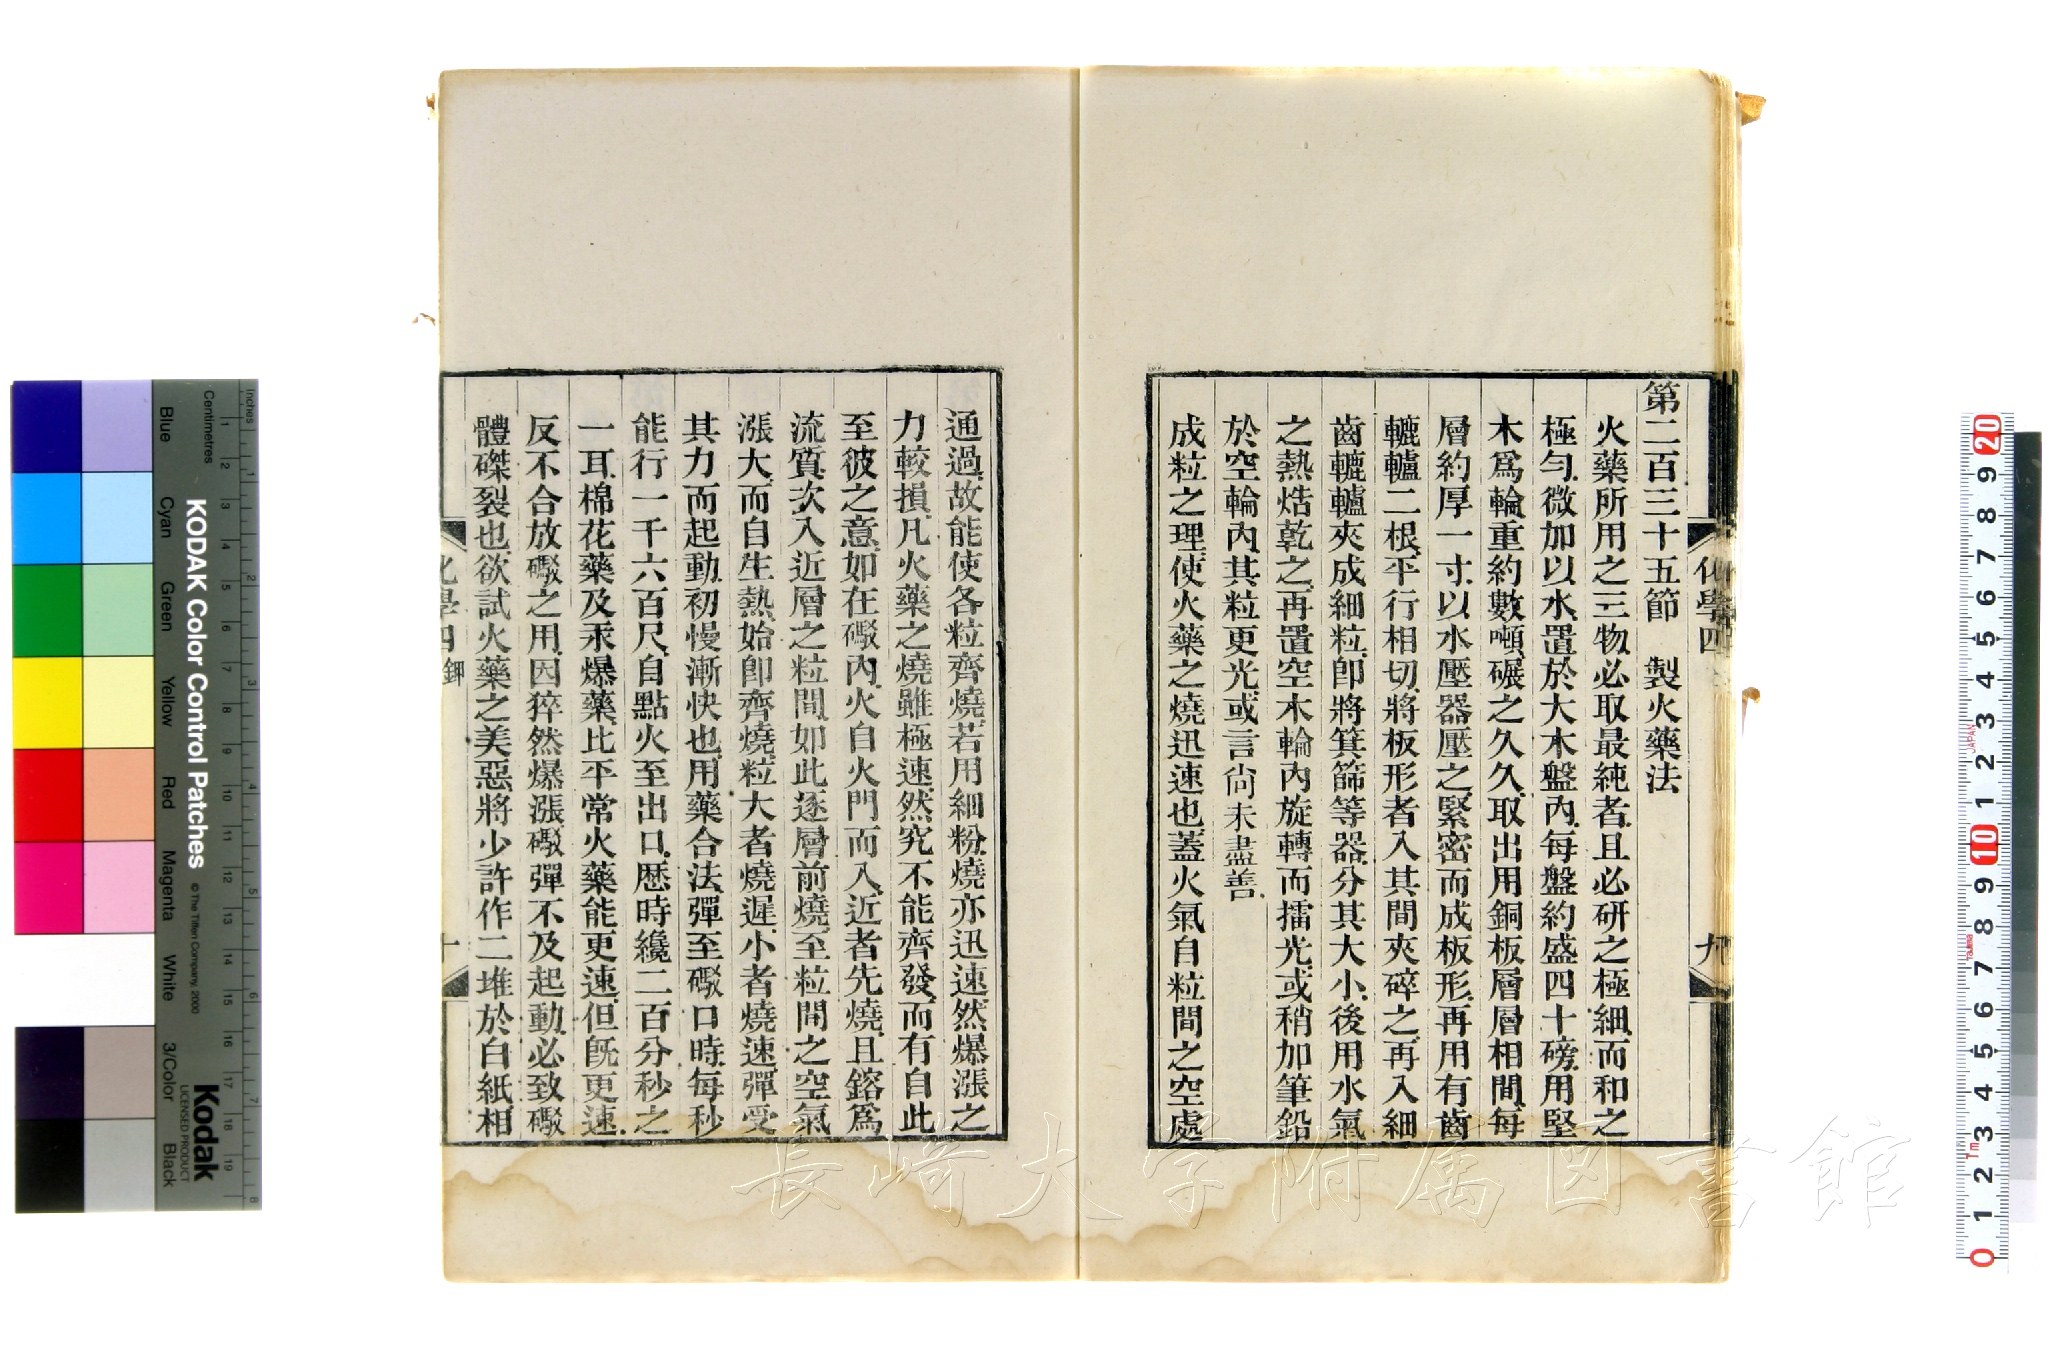 第二百三十五節　製火藥法
火藥所用之三物必取最純者、且必研之極細、而和之
極勻、微加以水、置於大木盤內、每盤約盛四十磅、用堅
木爲輪、重約數噸、碾之久久、取出用銅板層層相間、每
層約厚一寸、以水壓器壓之、緊密而成板形、再用有齒
轆轤二根、平行相切、將板形者入其間夾碎之、再入細
齒轆轤夾成細粒、卽將箕篩等器、分其大小、後用水氣
之熱焅乾之、再置空木輪內旋轉而擂光、或稍加筆鉛
於空輪內、其粒更光、或言尙未盡善、
成粒之理、使火藥之燒迅速也、蓋火氣自粒間之空處
化學四
九
通過、故能使各粒齊燒、若用細粉、燒亦迅速、然爆漲之
力較損、凡火藥之燒、雖極速、然究不能齊發、而有自此
至彼之意、如在礮內、火自火門而入、近者先燒、且鎔爲
流質、次入近層之粒間、如此逐層前燒、至粒間之空氣
漲大、而自生熱、始卽齊燒、粒大者燒遲、小者燒速、彈受
其力而起動、初慢漸快也、用藥合法、彈至礮口時、每秒
能行一千六百尺、自點火至出口、歷時纔二百分秒之
一耳、棉花藥及汞爆藥、比平常火藥能更速、但旣更速、
反不合放礮之用、因猝然爆漲、礮彈不及起動、必致礮
體磔裂也、欲試火藥之美惡、將少許作二堆於白紙、相
化學四 鉀
十
長崎大学附属図書館
KODAK Color Control Patches
© The Tiffen Company, 2000
Kodak
LICENSED PRODUCT
Inches
Centimetres
Blue
Cyan
Green
Yellow
Red
Magenta
White
3/Color
Black